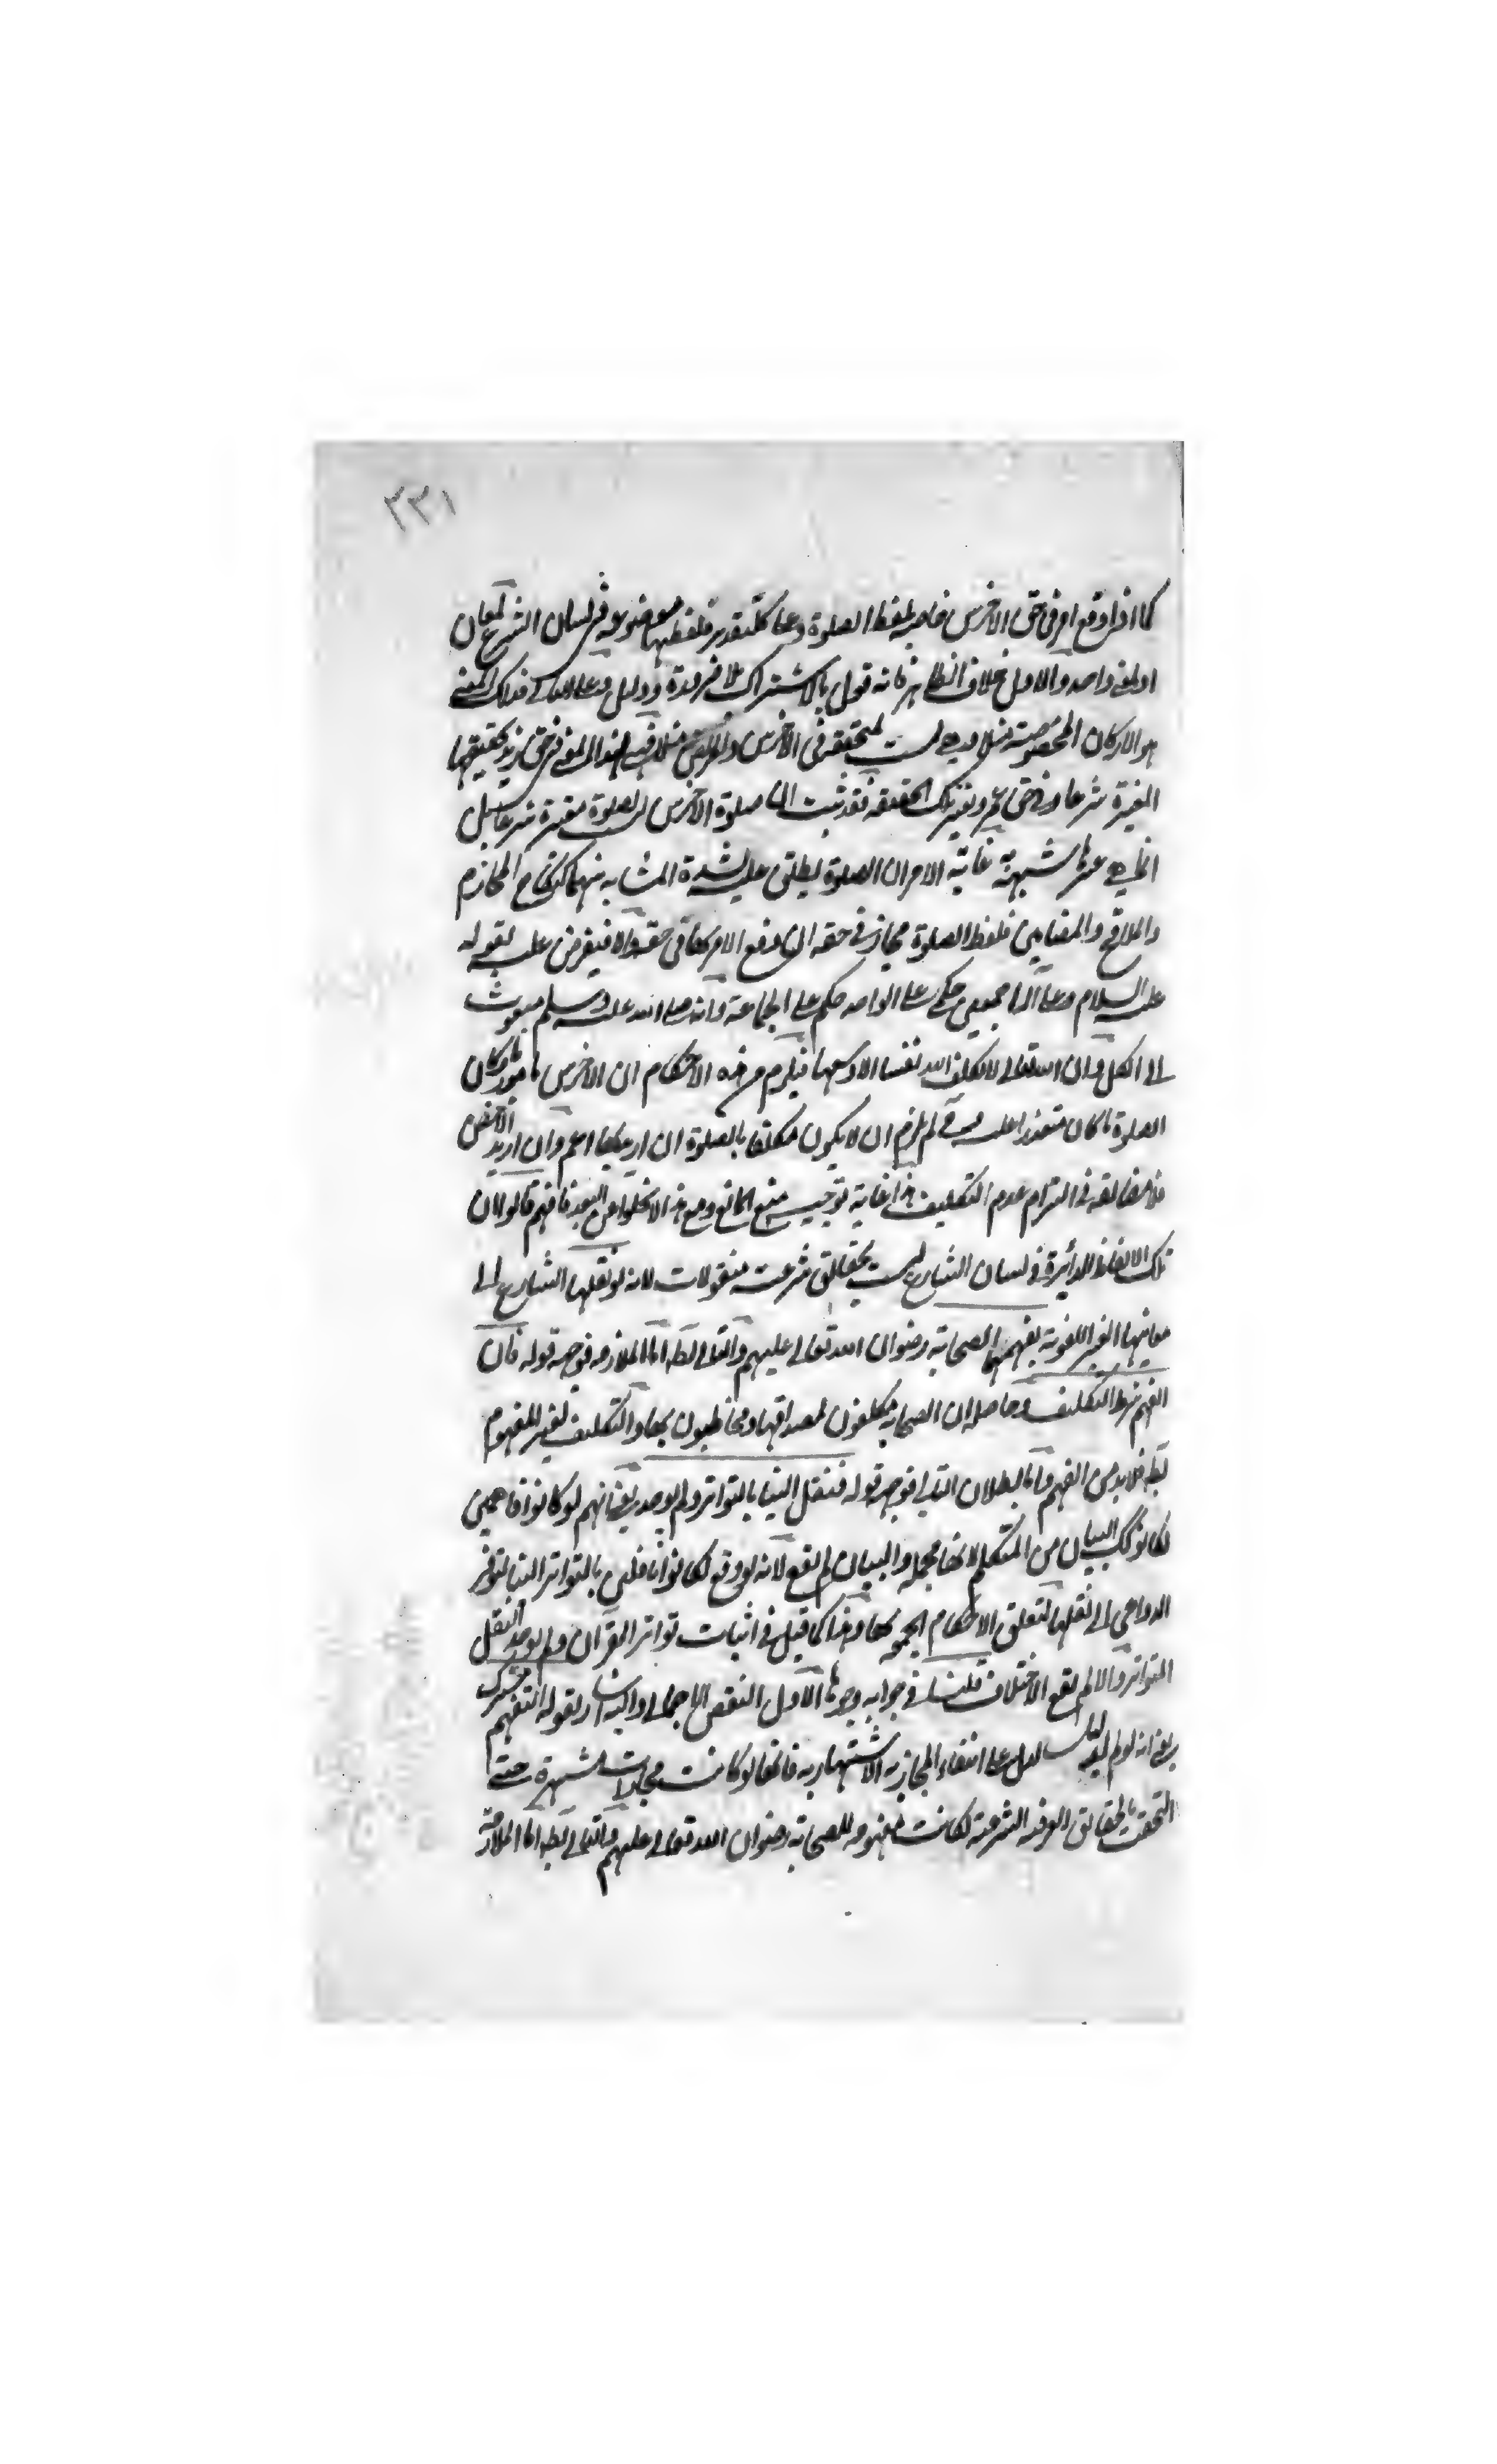 ٢٣١
كما اذا وقع امر في حق الاخرس خاصة بلفظ الصلوة وعلى كل تقدير فلفظها موضوعة في لسان الشرع لمعان
او لمعنى واحد والاول خلاف الظاهر فانه قول بالاشتراك بلا ضرورة ودليل وعلى الثاني فذلك المعنى
هو الاركان المخصوصة مثلا وهي ليست بمتحققة في الاخرس والمريض مثلا في حق زيد حقيقتها
المعتبرة شرعا وفي حق عمرو بغير تلك الحقيقة فقد ثبت ان صلوة الاخرس ليست بصلوة معتبرة شرعا بل
انما هي شبهة غاية الامر ان الصلوة يطلق عليه لشدة المشابهة بينهما كنكاح المحارم
والملاقيح والمضامين فلفظ الصلوة مجاز في حقه ان وقع الامر بها في حقه والا فيفرض عليه بقوله
عليه السلام وعلى اله اجمعين حكمي على الواحد حكم على الجماعة وانه صلى الله عليه وسلم مبعوث
الى الكل وان الله تعالى لا يكلف الله نفسا الا وسعها فيلزم من هذه الاحكام ان الاخرس مامور باركان
الصلوة ما كان متعذرا عليه لم يلزم ان لا يكون مكلفا بالصلوة ان اريد بها اعم وان اريد الاخص
فلا مضايقة في التزام عدم التكليف هذا غاية توجيه منع المانع ومع هذا لا يخلو عن البعد فافهم قالوا لان
تلك الالفاظ الدائرة في لسان الشارع ليست بحقائق شرعية منقولات لانه لو نقلها الشارع الى
معانيها الغير اللغوية لفهمها الصحابة رضوان الله تعالى عليهم والتالي بط اما الملازمة فوجهه قوله فان
الفهم شرط التكليف وحاصله ان الصحابة مكلفون لمصداقها ومخاطبون بها والتكليف لغير المفهوم
بط فلا بد من الفهم واما بطلان التالي فوجهه قوله فنقل الينا بالتواتر ولم يوجد يعني انهم لو كانوا فاهمين
لكان ذلك البيان من المتكلم لانها مجملة والبيان لم يقع لانه لو وقع لكانوا ناقلين بالتواتر الينا لتوفر
الدواعي الى نقلها لتعلق الاحكام بها وهذا كما قيل في اثبات تواتر القران ولم يوجد النقل
المتواتر والا لم يقع الاختلاف قلنا في جوابه وجوها الاول النقض الاجمالي واليه اشار بقوله التفهم مشترك
يعني انه لو تم لدل على انتفاء المجازية الاشتهارية فانها لو كانت مجازات مشتهرة حتى
التحقت بالحقائق العرفية الشرعية لكانت مفهومة للصحابة رضوان الله تعالى عليهم والتالي بط اما الملازمة